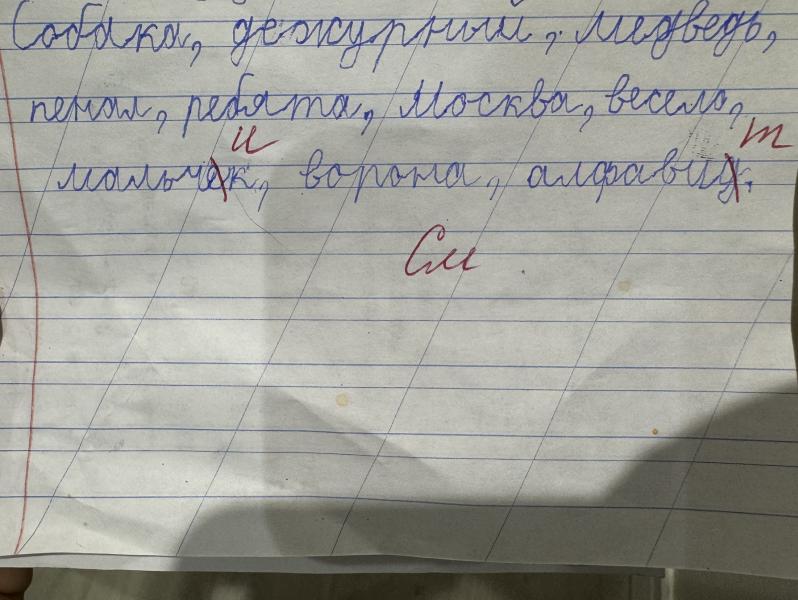 Собака, дежурный, медведь,
пенал, ребята, Москва, весело,
и т
мальчек, ворона, алфавид.
См